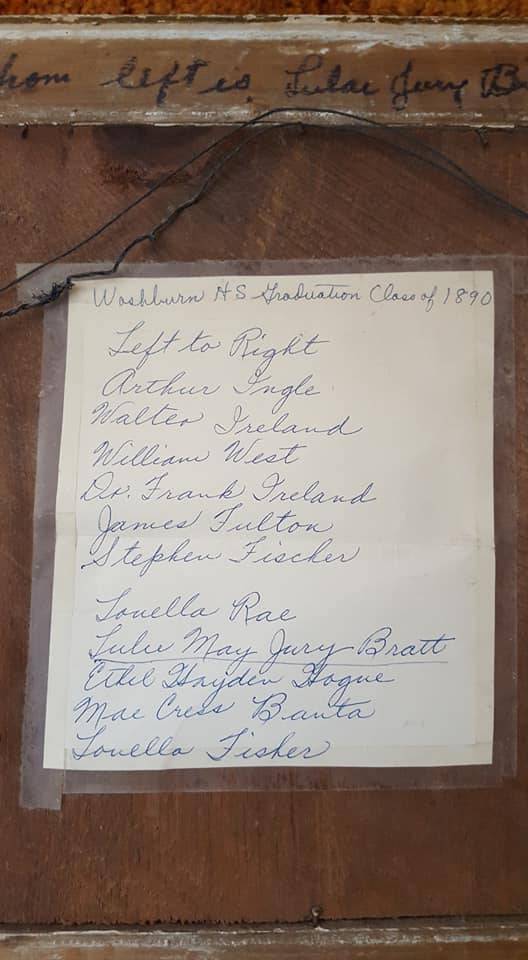 from left is Lulae Jury B
Washburn HS Graduation Class of 1890
Left to Right
Arthur Ingle
Walter Ireland
William West
Dr. Frank Ireland
James Fulton
Stephen Fischer
Louella Rae
Lulie May Jury Bratt
Ethel Hayden Hogue
Mae Cress Banta
Louella Fisher